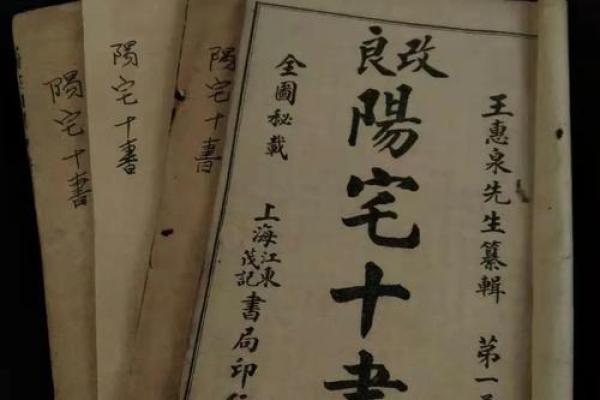 王惠泉先生纂輯 第一
改良
陽宅十書
全圖秘載
上海江東茂記書局印
陽宅十書
陽宅十書
陽宅十書